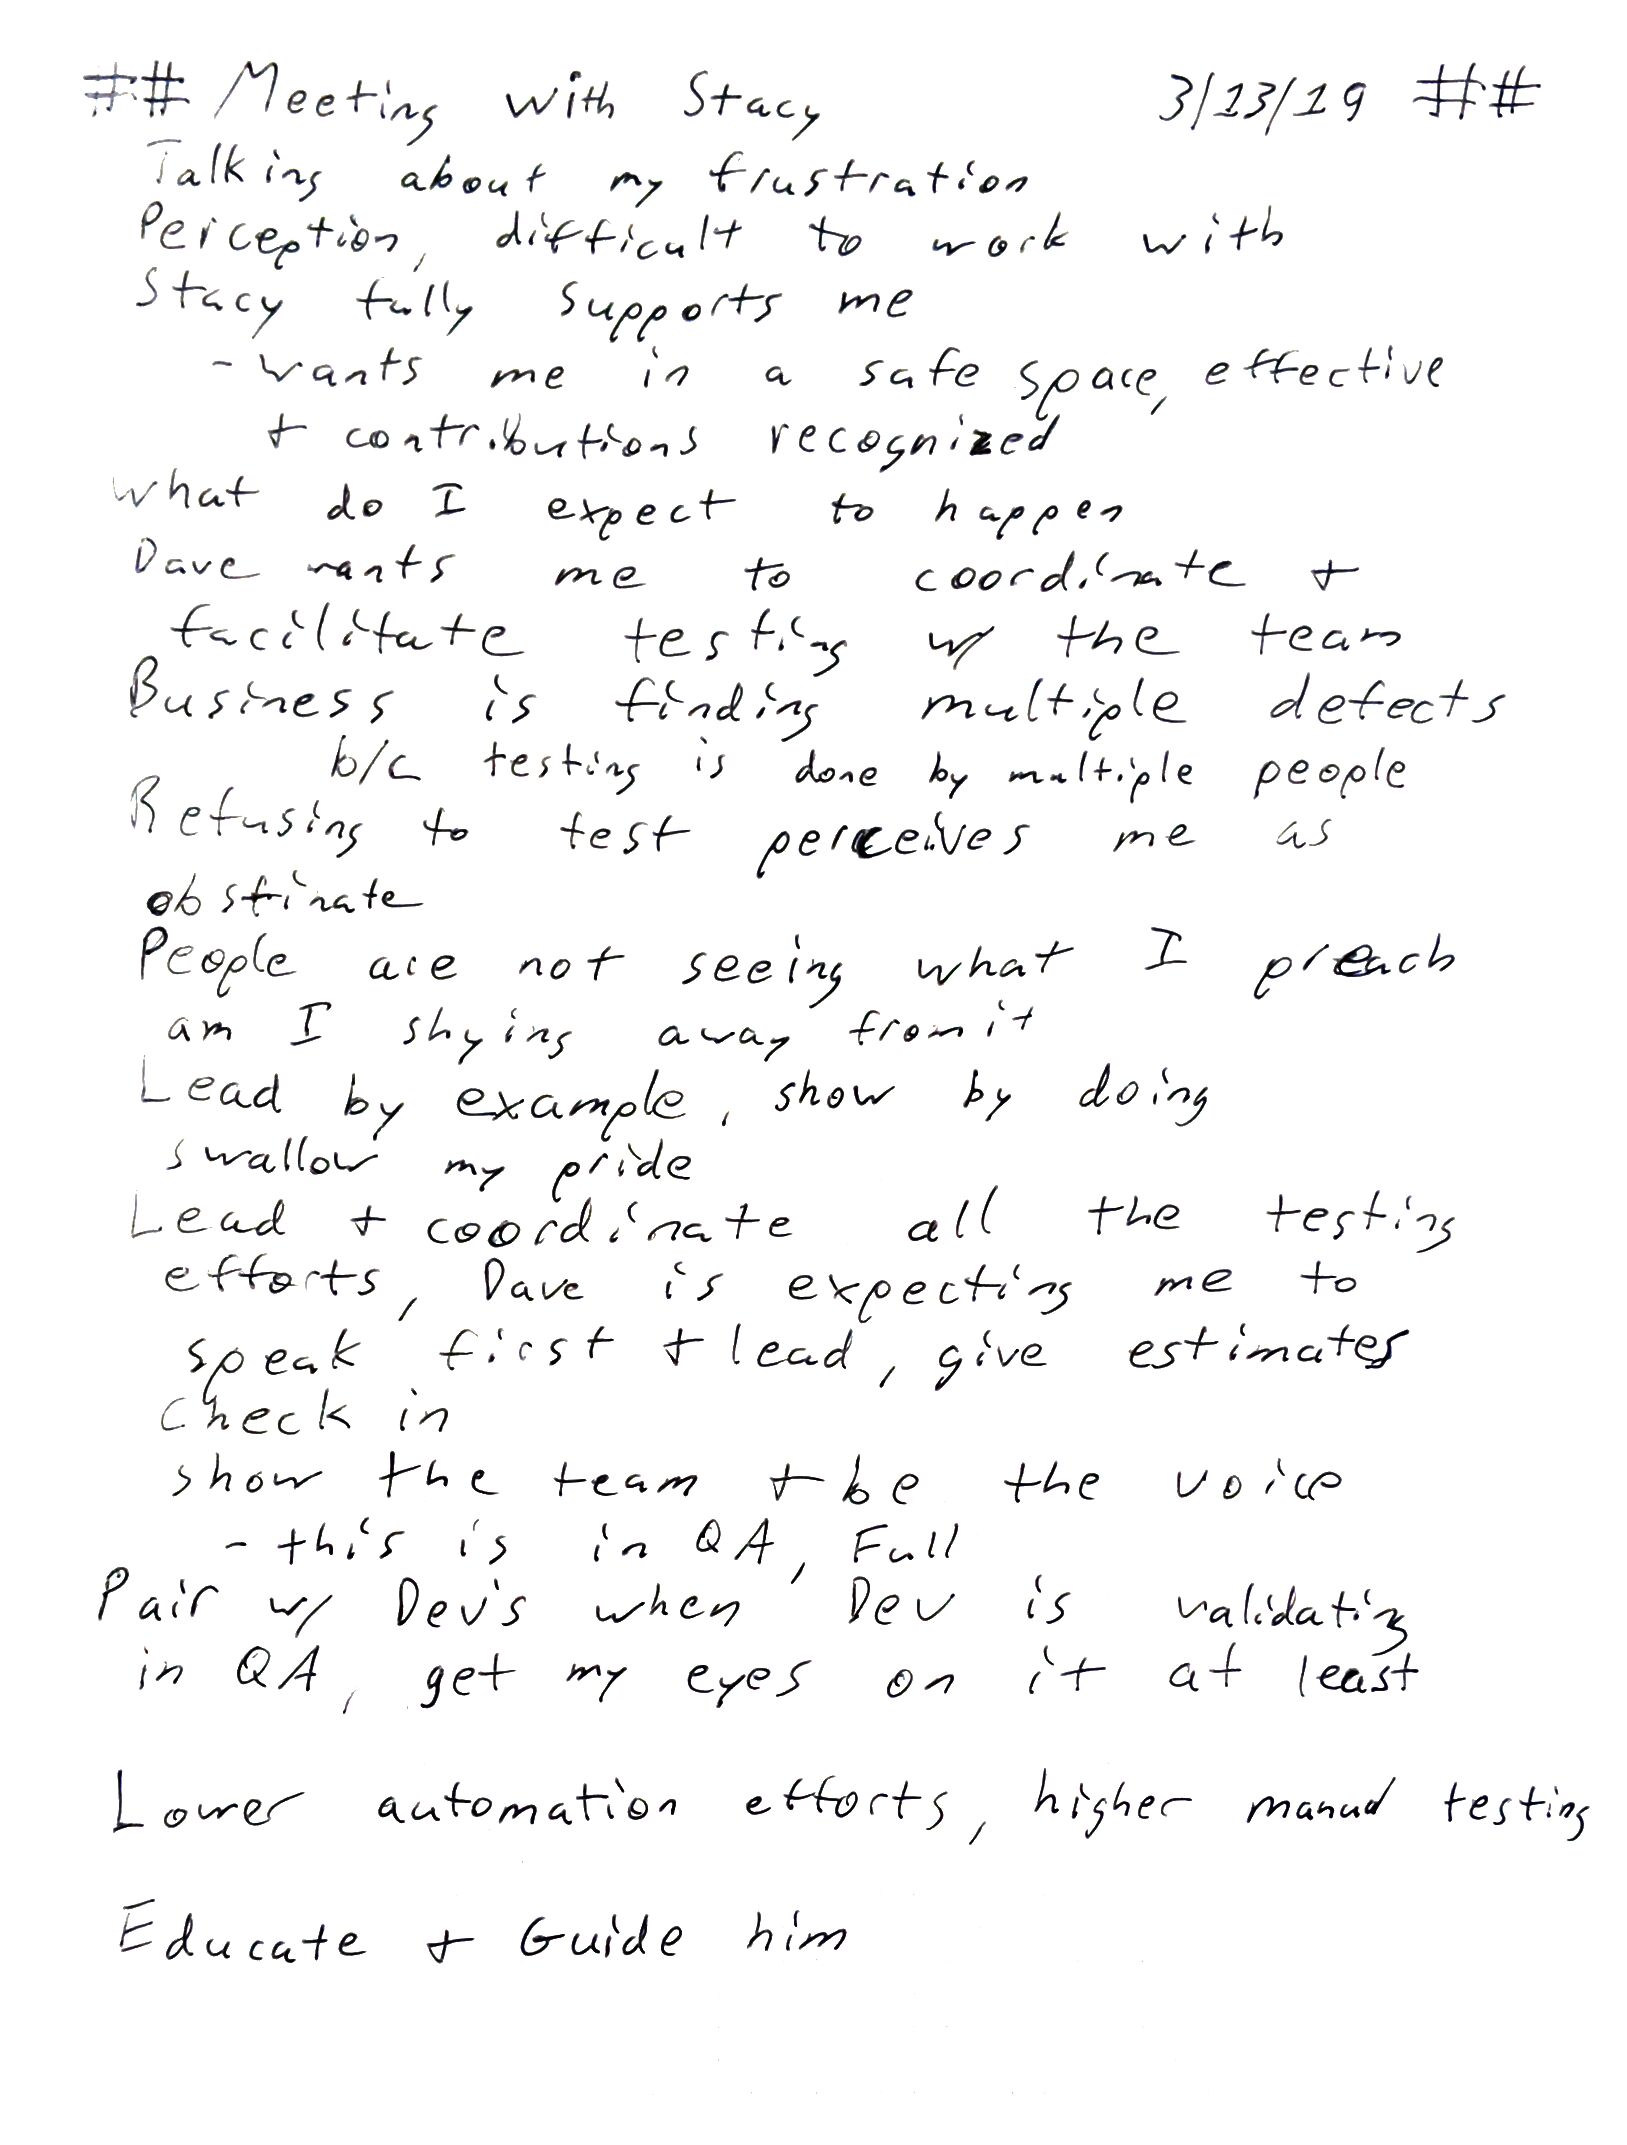 ## Meeting with Stacy 3/13/19 ##
Talking about my frustration
Perception, difficult to work with
Stacy fully supports me
- wants me in a safe space, effective
+ contributions recognized
what do I expect to happen
Dave wants me to coordinate +
facilitate testing w/ the team
Business is finding multiple defects
b/c testing is done by multiple people
Refusing to test perceives me as
obstinate
People are not seeing what I preach
am I shying away from it
Lead by example, show by doing
swallow my pride
Lead + coordinate all the testing
efforts, Dave is expecting me to
speak first + lead, give estimates
check in
show the team + be the voice
- this is in QA, Full
Pair w/ Dev's when Dev is validating
in QA, get my eyes on it at least
Lower automation efforts, higher manual testing
Educate + Guide him